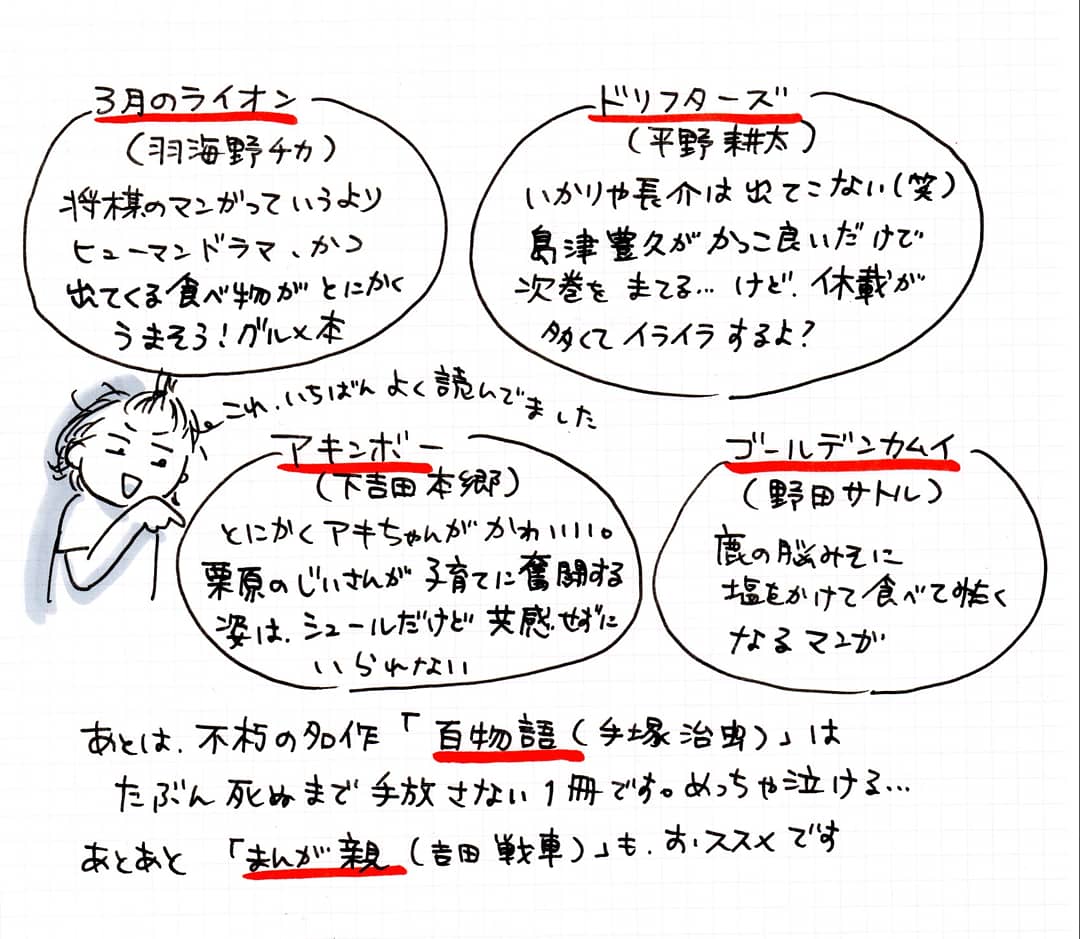 3月のライオン
(羽海野チカ)
将棋のマンガっていうより
ヒューマンドラマ、かつ
出てくる食べ物がとにかく
うまそう!グルメ本
ドリフターズ
(平野耕太)
いかりや長介は出てこない(笑)
島津豊久がかっこ良いだけで
次巻をまてる…けど、休載が
多くてイライラするよ?
これ、いちばんよく読んでました
アキンボー
(下吉田本郷)
とにかくアキちゃんがかわいいい。
栗原のじいさんが子育てに奮闘する
姿は、シュールだけど共感せずに
いられない
ゴールデンカムイ
(野田サトル)
鹿の脳みそに
塩をかけて食べて怖く
なるマンガ
あとは、不朽の名作「百物語(手塚治虫)」は
たぶん死ぬまで手放さない1冊です。めっちゃ泣ける…
あとあと「まんが親(吉田戦車)」も、おススメです